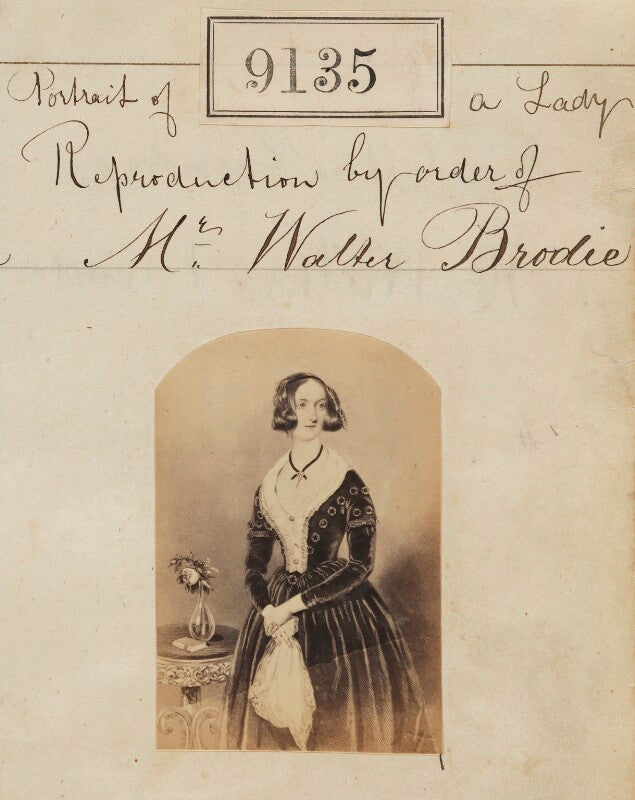 9135
Portrait of a Lady
Reproduction by order of
Mr. Walter Brodie